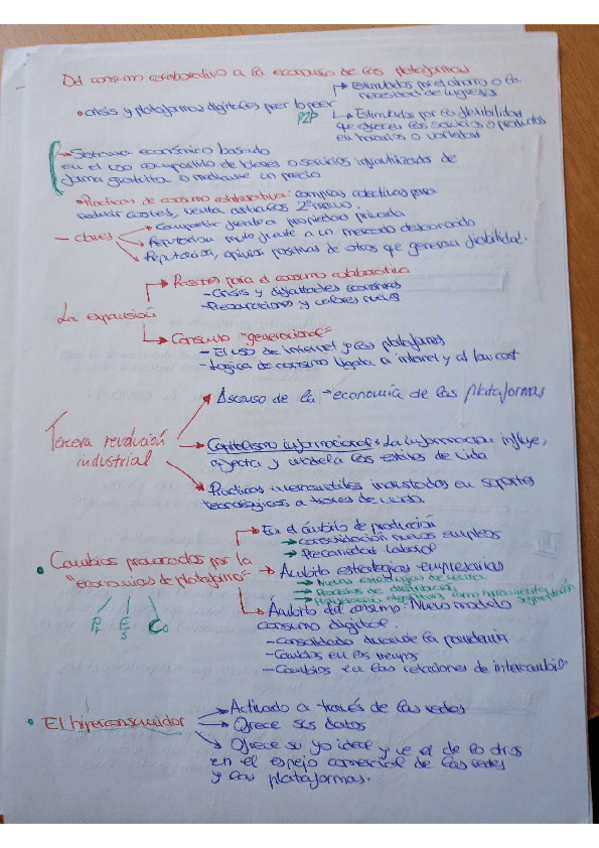 Del consumo colaborativo a la economía de las plataformas
• crisis y plataformas digitales peer to peer P2P
→ Estimulados por el ahorro o la
necesidad de ingresos
→ Estimulados por la flexibilidad
que ofrecen los servicios o productos
en horarios o variedad
→ Sistema económico basado
en el uso compartido de bienes o servicios infrautilizados de
forma gratuita o mediante un precio
• Prácticas de consumo colaborativo: compras colectivas para
reducir costes, venta artículos 2ª mano.
- claves
→ Compartir frente a propiedad privada
→ Reputación mutua frente a un mercado desconocido
→ Reputación, opinión positivas de otros que generan fiabilidad.
La expansión
→ Razones para el consumo colaborativo
- Crisis y dificultades económicas
- Preocupaciones y valores nuevos
→ Consumo "generacional"
- El uso de internet y las plataformas
- Logica de consumo ligada a internet y al low cost
Tercera revolución
industrial
→ Ascenso de la "economía de las plataformas
→ Capitalismo informacional: La informacion influye,
afecta y modela los estilos de vida
→ Prácticas mercantiles incrustadas en soportes
tecnológicos, a traves de
• Cambios provocados por la
"economías de plataforma"
P E C
→ En el ámbito de producción
→ consolidación nuevos empleos
→ Precariedad laboral
→ Ámbito estrategias empresarias
→ Nuevas estrategias de venta
→ Procesos de distribución
→ como herramientas segmentación
→ Ámbito del consumo: Nuevo modelo
consumo digital.
- Consolidado durante la pandemia
- Cambios en los tiempos
- Cambios en las relaciones de intercambio
• El hiperconsumidor
→ Activado a través de las redes
→ Ofrece sus datos
→ Ofrece su yo ideal y ve el de lo otros
en el espejo comercial de las redes
y las plataformas.